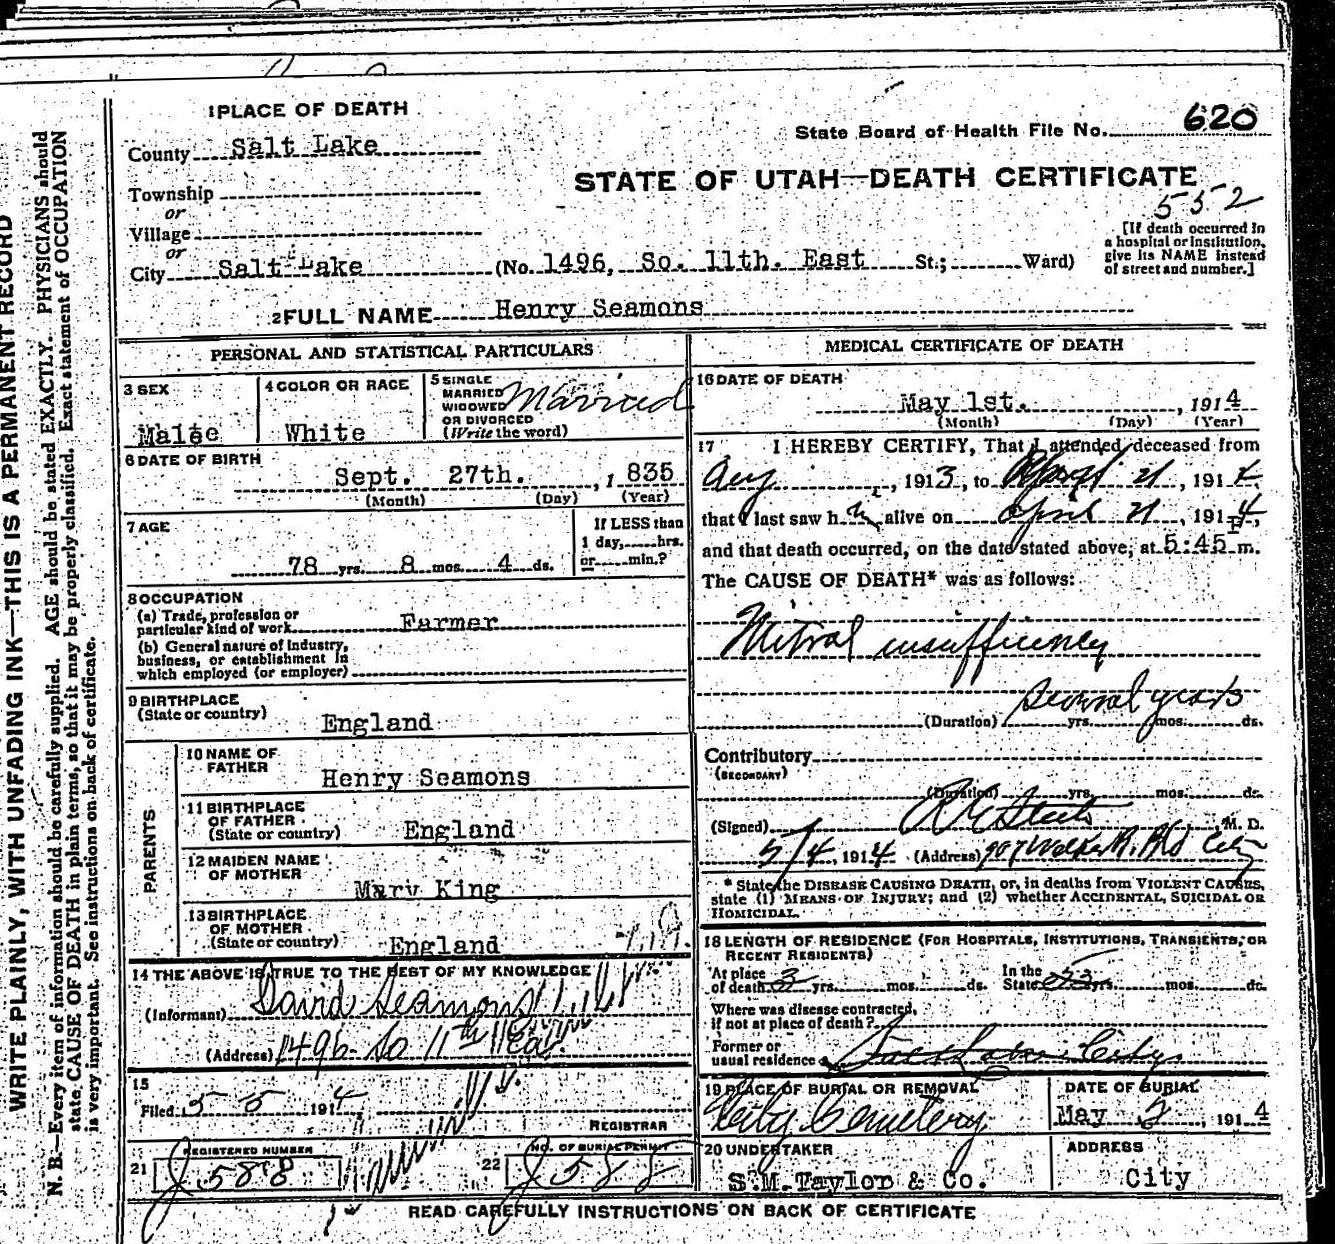 WRITE PLAINLY, WITH UNFADING INK—THIS IS A PERMANENT RECORD
N. B.—Every item of information should be carefully supplied. AGE should be stated EXACTLY. PHYSICIANS should
state CAUSE OF DEATH in plain terms, so that it may be properly classified. Exact statement of OCCUPATION
is very important. See instructions on back of certificate.
1 PLACE OF DEATH
State Board of Health File No. 620
County Salt Lake
STATE OF UTAH—DEATH CERTIFICATE
552
Township
or
Village
or
City Salt Lake (No. 1496, So. 11th. East St.; Ward)
[If death occurred in
a hospital or institution,
give its NAME instead
of street and number.]
2 FULL NAME Henry Seamons
PERSONAL AND STATISTICAL PARTICULARS
3 SEX
Male
4 COLOR OR RACE
White
5 SINGLE
MARRIED
WIDOWED
OR DIVORCED
(Write the word)
Married
6 DATE OF BIRTH
Sept. 27th. , 1835
(Month) (Day) (Year)
7 AGE
78 yrs. 8 mos. 4 ds.
If LESS than
1 day, hrs.
or min.?
8 OCCUPATION
(a) Trade, profession or
particular kind of work Farmer
(b) General nature of industry,
business, or establishment in
which employed (or employer)
9 BIRTHPLACE
(State or country)
England
PARENTS
10 NAME OF
FATHER
Henry Seamons
11 BIRTHPLACE
OF FATHER
(State or country) England
12 MAIDEN NAME
OF MOTHER
Mary King
13 BIRTHPLACE
OF MOTHER
(State or country) England
14 THE ABOVE IS TRUE TO THE BEST OF MY KNOWLEDGE
(Informant) David Seamons
(Address) 1496 So 11th East
15
Filed 5 5 1914,
REGISTRAR
REGISTERED NUMBER
21 J 588
NO. OF BURIAL PERMIT
22 J 588
MEDICAL CERTIFICATE OF DEATH
16 DATE OF DEATH
May 1st. , 1914
(Month) (Day) (Year)
17 I HEREBY CERTIFY, That I attended deceased from
Aug , 1913, to April 21, 1914
that I last saw h alive on April 21, 1914,
and that death occurred, on the date stated above, at 5:45 m.
The CAUSE OF DEATH* was as follows:
Mitral insufficiency
several years
(Duration) yrs. mos. ds.
Contributory
(SECONDARY)
(Duration) yrs. mos. ds.
(Signed) M. D.
5/4, 1914 (Address) 907 Walker City
* State the DISEASE CAUSING DEATH, or, in deaths from VIOLENT CAUSES,
state (1) MEANS OF INJURY; and (2) whether ACCIDENTAL, SUICIDAL OR
HOMICIDAL.
18 LENGTH OF RESIDENCE (FOR HOSPITALS, INSTITUTIONS, TRANSIENTS, OR
RECENT RESIDENTS)
At place
of death 3 yrs. mos. ds.
In the
State 53 yrs. mos. ds.
Where was disease contracted,
if not at place of death?
Former or
usual residence Salt Lake City
19 PLACE OF BURIAL OR REMOVAL
City Cemetery
DATE OF BURIAL
May 5, 1914
20 UNDERTAKER
S.M. Taylor & Co.
ADDRESS
City
READ CAREFULLY INSTRUCTIONS ON BACK OF CERTIFICATE